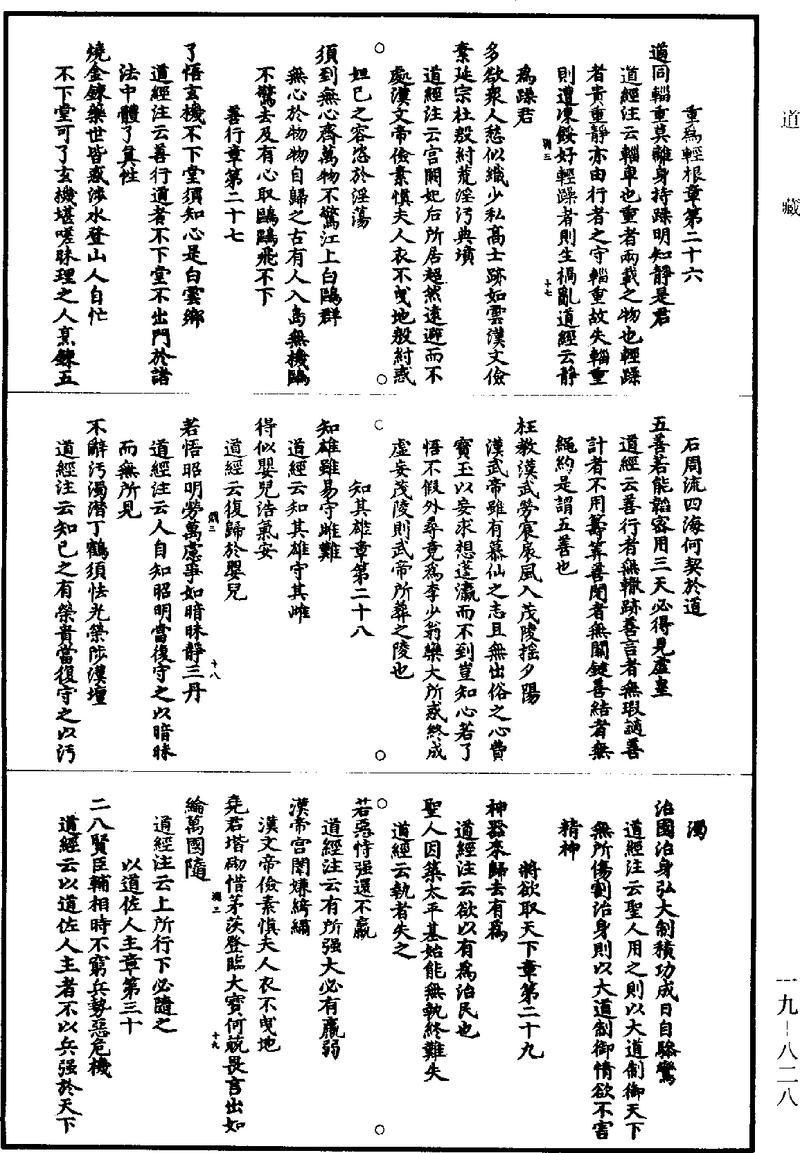 道藏
重為輕根章第二十六
邁同輜重莫離身持躁明知靜是君
道經注云輜車也重者兩載之物也輕躁
者貴重靜亦由行者之守輜重故失輜重
則遭凍餒好輕躁者則生禍亂道經云靜
十七
為躁君
多欲衆人愁似織少私高士跡如雲漢文儉
素延宗社殷紂荒淫汚典墳
道經注云宮闕妃后所居超然遠避而不
處漢文帝儉素慎夫人衣不曳地殷紂惑
妲己之容恣於淫蕩
須到無心齊萬物不驚江上白鷗群
無心於物物自歸之古有人入島無機鷗
不驚去及有心取鷗鷗飛不下
善行章第二十七
了悟玄機不下堂須知心是白雲鄉
道經注云善行道者不下堂不出門於諸
法中體了真性
燒金鍊藥世皆惑涉水登山人自忙
不下堂可了玄機堪嗟昧理之人烹鍊五
石周流四海何契於道
五善若能韜密用三天必得見虛皇
道經云善行者無轍跡善言者無瑕讁善
計者不用籌筭善閉者無關鍵善結者無
繩約是謂五善也
枉教漢武勞寰扆風入茂陵搖夕陽
漢武帝雖有慕仙之志且無出俗之心費
寶玉以妄求想蓬瀛而不到豈知心若了
悟不假外尋竟為李少翁欒大所惑終成
虛妄茂陵則武帝所葬之陵也
知其雄章第二十八
知雄雖易守雌難
道經云知其雄守其雌
得似嬰兒浩氣安
道經云復歸於嬰兒
十八
若悟昭明勞萬慮爭如暗昧靜三丹
道經注云人自知昭明當復守之以暗昧
而無所見
不辭汚濁潛丁鶴須怯光榮陟漢壇
道經注云知已之有榮貴當復守之以汚
濁
治國治身弘大制積功成日自驂鸞
道經注云聖人用之則以大道制御天下
無所傷割治身則以大道制御情欲不害
精神
將欲取天下章第二十九
神器來歸去有為
道經注云欲以有為治民也
聖人因築太平基始能無執終難失
道經云執者失之
若惡恃强還不羸
道經注云有所强大必有羸弱
漢帝宮闈嫌綺繡
漢文帝儉素慎夫人衣不曳地
堯君堦砌惜茅茨登臨大寶何兢畏言出如
十九
綸萬國隨
道經注云上所行下必隨之
以道佐人主章第三十
二八賢臣輔相時不窮兵勢惡危機
道經云以道佐人主者不以兵强於天下
一九-八二八